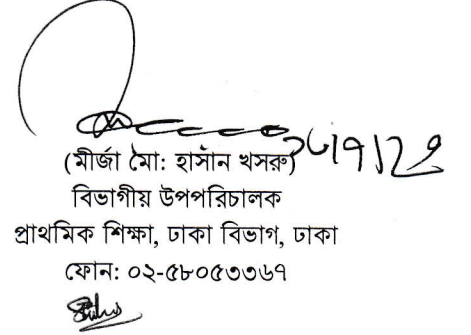 (মীর্জা মো: হাসান খসরু)
বিভাগীয় উপপরিচালক
প্রাথমিক শিক্ষা, ঢাকা বিভাগ, ঢাকা
ফোন: ০২-৫৮০৫৩৩৬৭